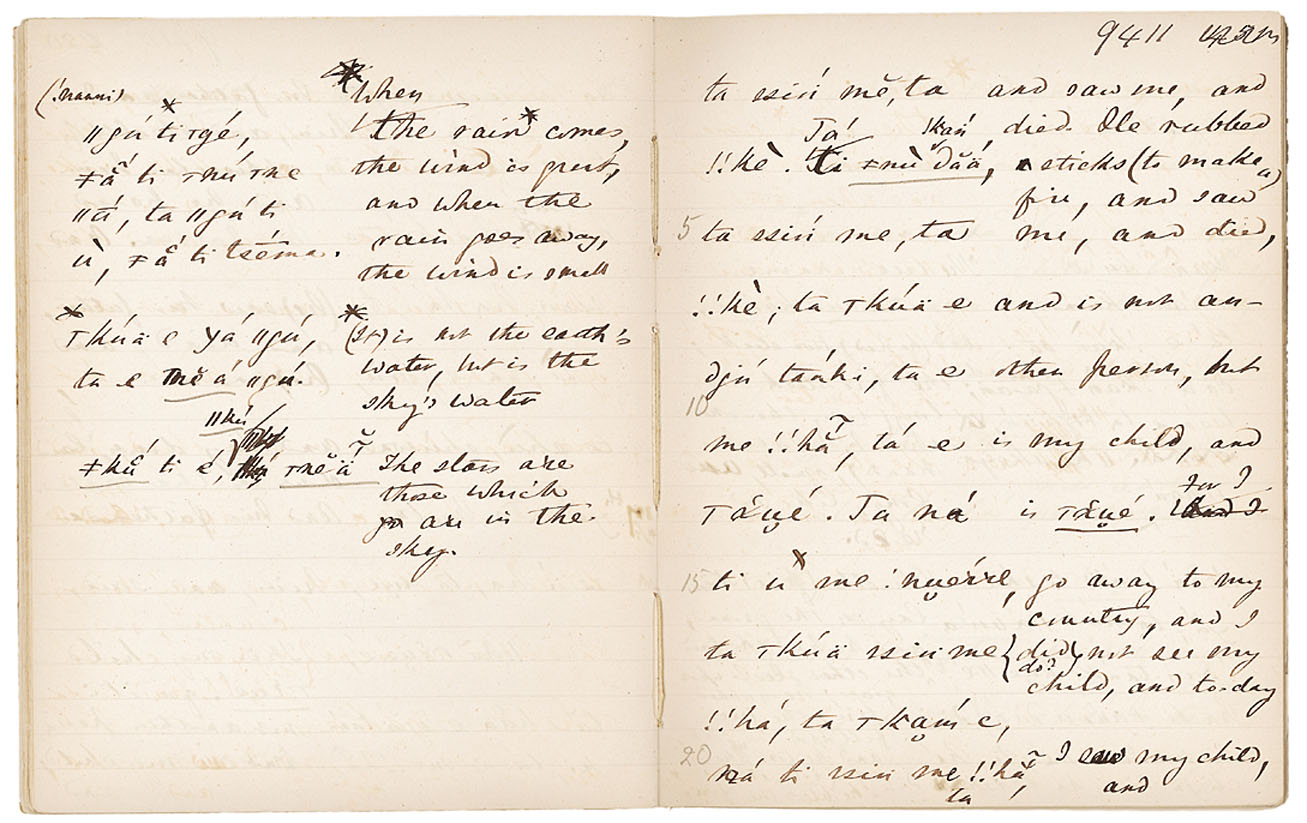 (!nanni)
ǁgú ti ꞇgé,
ǂẫ ti ꞇnú ꞇne
ǁá, ta ǁgú ti
ù, ǂẫ ti tséma.
When
The rain comes,
the wind is great,
and when the
rain goes away,
the wind is small
ꞇkúä e yá ǁgú,
ta e á ǁgú.
(It) is not the earth's
water, but is the
sky's water
ǁkú
ti é,
The stars are
those which
are in the
sky.
9411
ta ssiń mĕ, ta and saw me, and
Tá died. He rubbed
!!kè. sticks (to make a)
fire, and saw
5 ta ssiń me, ta me, and died,
!!kè; ta ꞇkúä e and is not an-
táńki, ta e other person, but
10
me !!hã, tá e is my child, and
For I
Ta ná is
15 ti ù me go away to my
country, and I
ta ꞇkúä ssin me {did do?} not see my
child, and to-day
!!há, ta
20 ná ti ssin me !!hã, I saw my child,
ta and